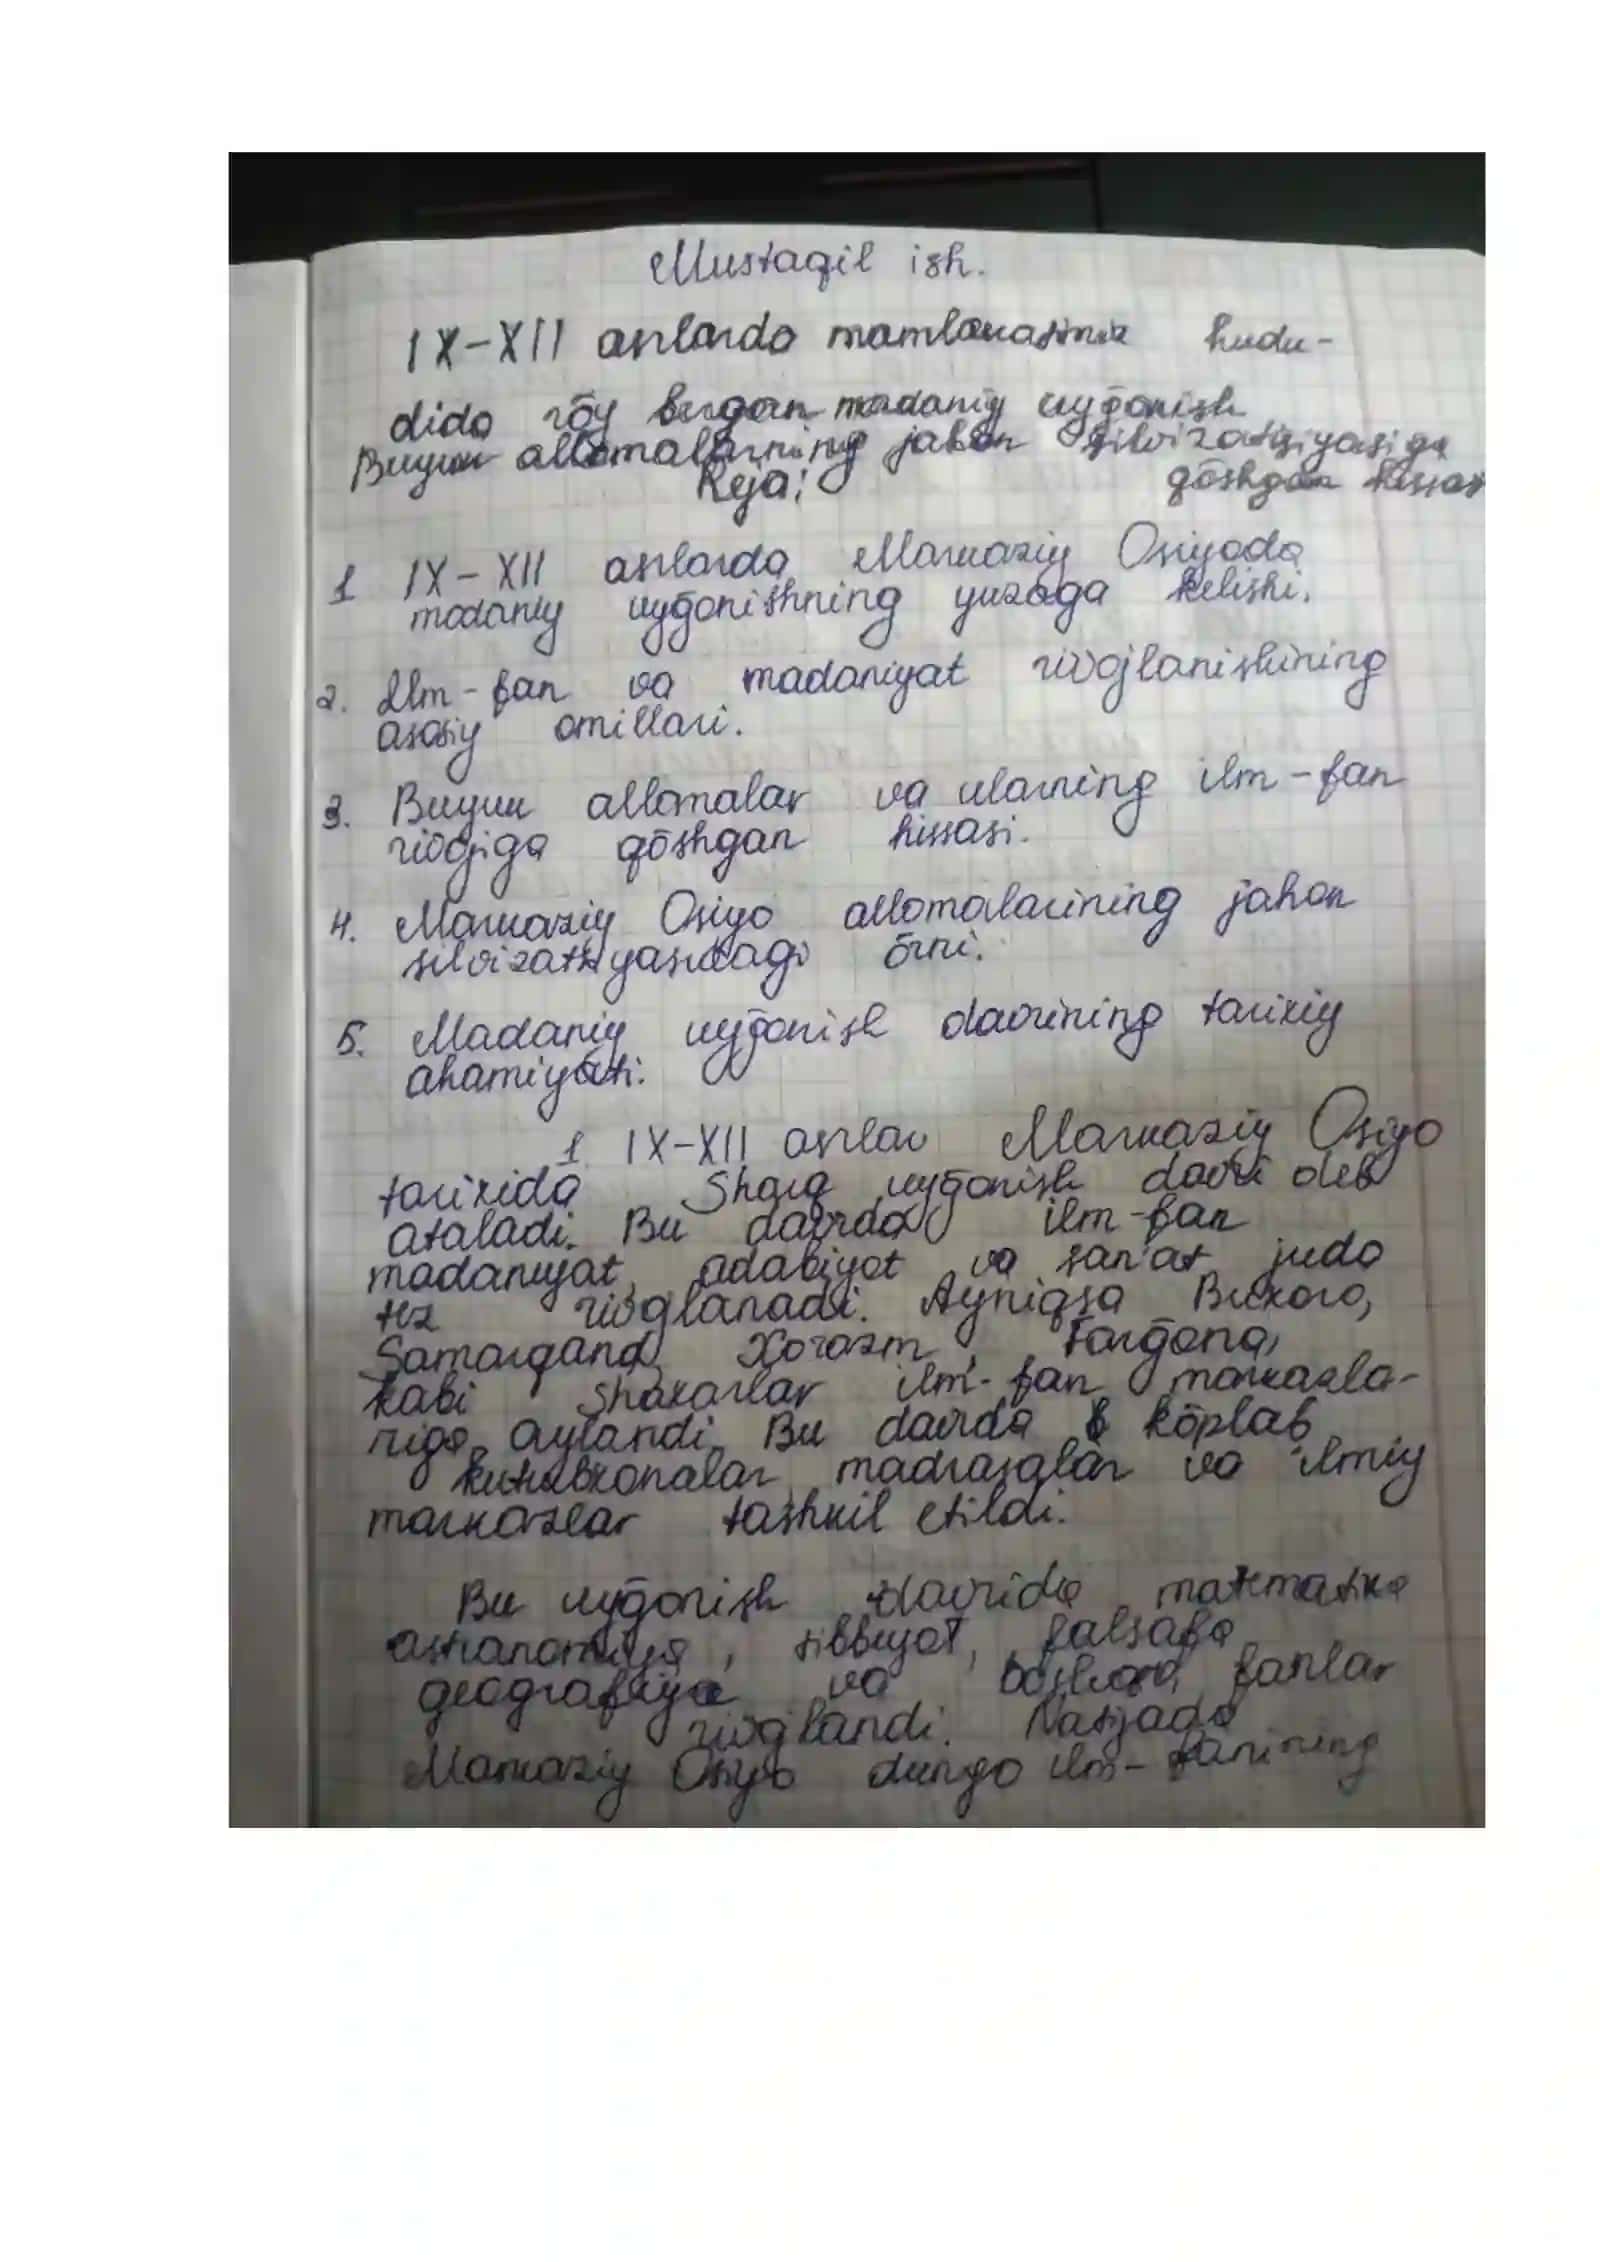 Mustaqil ish.
IX-XII asrlarda mamlakatimiz hudu-
dida rōy bergan madaniy uyḡonish
Buyuk allomalarning jahon silvizatsiyasiga
Reja; qōshgan hissasi
1 IX-XII asrlarda Markaziy Osiyoda
madaniy uyḡonishning yuzaga kelishi.
2. Ilm-fan va madaniyat rivojlanishining
asosiy omillari.
3. Buyuk allomalar va ularning ilm-fan
rivojiga qōshgan hissasi.
4. Markaziy Osiyo allomalarining jahon
silvizatsiyasidagi ōrni.
5. Madaniy uyḡonish davrining tarixiy
ahamiyati.
1. IX-XII asrlar Markaziy Osiyo
tarixida Sharq uyḡonish davri deb
ataladi. Bu davrda ilm-fan
madaniyat, adabiyot va san'at juda
tez rivojlanadi. Ayniqsa Buxoro,
Samarqand, Xorazm, Farḡona,
kabi shaxarlar ilm-fan markazla-
riga aylandi. Bu davrda kōplab
kutubxonalar, madrasalar va ilmiy
markazlar tashkil etildi.
Bu uyḡonish davrida matematika
astranomiya, tibbiyot, falsafa
geografiya va boshqa fanlar
rivojlandi. Natijada
Markaziy Osiyo dunyo ilm-fanining